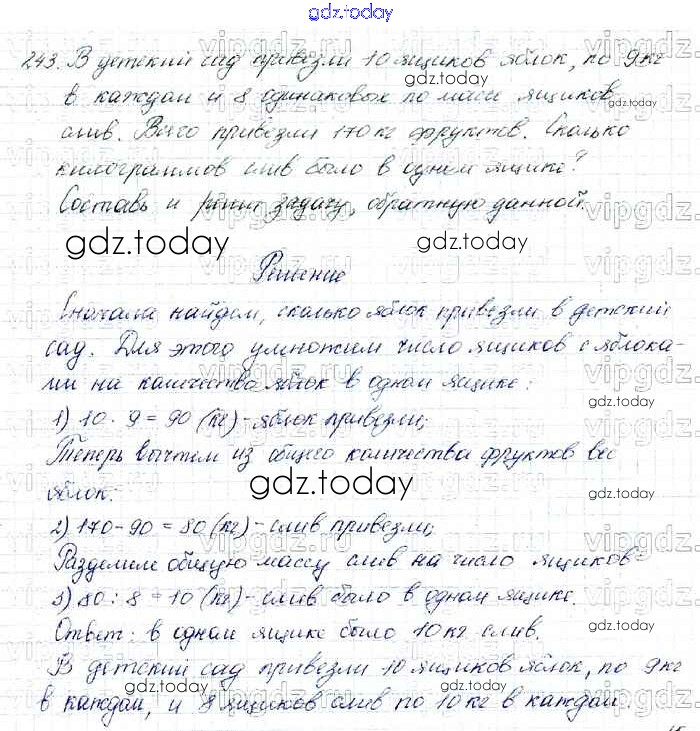 gdz.today
243. В детский сад привезли 10 ящиков яблок, по 9 кг
в каждом и 8 одинаковых по массе ящиков
слив. Всего привезли 170 кг фруктов. Сколько
килограммов слив было в одном ящике?
Составь и реши задачу, обратную данной.
gdz.today gdz.today
Решение
Сначала найдем, сколько яблок привезли в детский
сад. Для этого умножим число ящиков с яблока-
ми на количества яблок в одном ящике:
1) 10 · 9 = 90 (кг) - яблок привезли;
Теперь вычтем из общего количества фруктов вес
яблок:
gdz.today gdz.today
2) 170 - 90 = 80 (кг) - слив привезли;
Разделим общую массу слив на число ящиков
3) 80 : 8 = 10 (кг) - слив было в одном ящике.
Ответ: в одном ящике было 10 кг слив.
В детский сад привезли 10 ящиков яблок, по 9 кг
в каждом, и 8 ящиков слив по 10 кг в каждом.